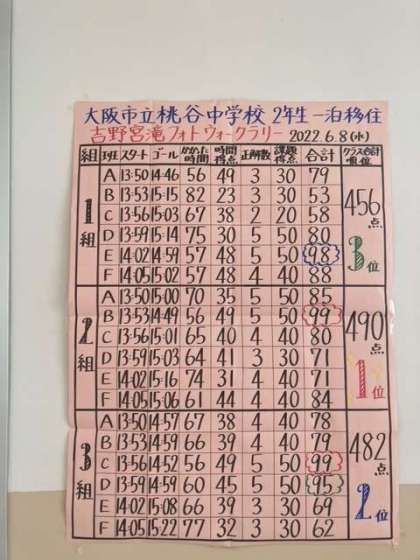 大阪市立桃谷中学校 2年生 一泊移住
吉野宮滝フォトウォークラリー 2022.6.8(水)
組 班 スタート ゴール かかった時間 時間得点 正解数 課題得点 合計 クラス合計順位
1組 456点 3位
A 13:50 14:46 56 49 3 30 79
B 13:53 15:15 82 23 3 30 53
C 13:56 15:03 67 38 2 20 58
D 13:59 15:14 75 30 5 50 80
E 14:02 14:59 57 48 5 50 98
F 14:05 15:02 57 48 4 40 88
2組 490点 1位
A 13:50 15:00 70 35 5 50 85
B 13:53 14:49 56 49 5 50 99
C 13:56 15:01 65 40 4 40 80
D 13:59 15:03 64 41 3 30 71
E 14:02 15:16 74 31 4 40 71
F 14:05 15:06 61 44 4 40 84
3組 482点 2位
A 13:50 14:57 67 38 4 40 78
B 13:53 14:59 66 39 4 40 79
C 13:56 14:52 56 49 5 50 99
D 13:59 14:59 60 45 5 50 95
E 14:02 15:08 66 39 3 30 69
F 14:05 15:22 77 32 3 30 62